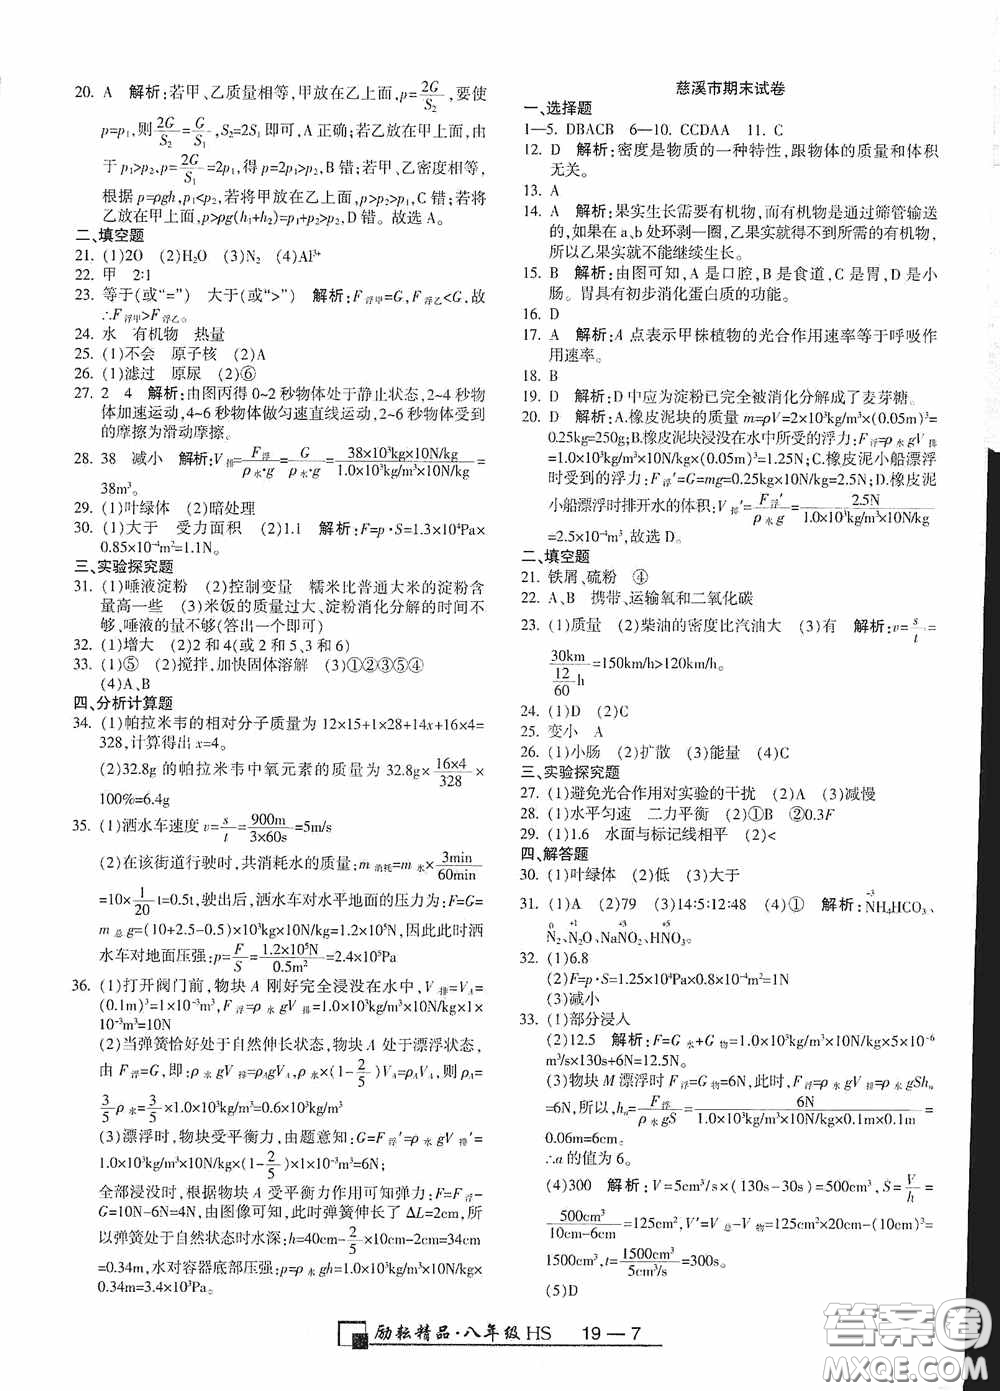 20. A 解析:若甲、乙质量相等,甲放在乙上面,p=2G/S₂,要使
p=p₁,则2G/S₂=G/S₁,S₂=2S₁即可,A正确;若甲放在乙上面,由
于p₁>p₂,p=2G/S₁=2p₁,得p=2p₁>p₁+p₂,B错;若甲、乙密度相等,
根据p=ρgh,p₁<p₂,若将甲放在乙上面,p>p₂>p₁,C错;若将
乙放在甲上面,p>ρg(h₁+h₂)=p₁+p₂>p₂,D错。故选A。
二、填空题
21. (1)2O (2)H₂O (3)N₂ (4)Al³⁺
22. 甲 2:1
23. 等于(或“=”) 大于(或“>”) 解析:F浮甲=G,F浮乙<G,故
∴F浮甲>F浮乙。
24. 水 有机物 热量
25. (1)不会 原子核 (2)A
26. (1)滤过 原尿 (2)⑥
27. 2 4 解析:由图丙得0~2秒物体处于静止状态,2~4秒物
体加速运动,4~6秒物体做匀速直线运动,2~6秒物体受到
的摩擦为滑动摩擦。
28. 38 减小 解析:V排=F浮/ρ水·g=G/ρ水·g=38×10³kg×10N/kg/1.0×10³kg/m³×10N/kg=
38m³。
29. (1)叶绿体 (2)暗处理
30. (1)大于 受力面积 (2)1.1 解析:F=p·S=1.3×10⁴Pa×
0.85×10⁻⁴m²=1.1N。
三、实验探究题
31. (1)唾液淀粉 (2)控制变量 糯米比普通大米的淀粉含
量高一些 (3)米饭的质量过大、淀粉消化分解的时间不
够、唾液的量不够(答出一个即可)
32. (1)增大 (2)2和4(或2和5、3和6)
33. (1)⑤ (2)搅拌,加快固体溶解 (3)①②③⑤④
(4)A、B
四、分析计算题
34. (1)帕拉米韦的相对分子质量为12×15+1×28+14x+16×4=
328,计算得出x=4。
(2)32.8g的帕拉米韦中氧元素的质量为32.8g×16×4/328×
100%=6.4g
35. (1)洒水车速度v=s/t=900m/3×60s=5m/s
(2)在该街道行驶时,共消耗水的质量:m消耗=m水×3min/60min
=10×1/20t=0.5t,驶出后,洒水车对水平地面的压力为:F=G=
m总g=(10+2.5-0.5)×10³kg×10N/kg=1.2×10⁵N,因此此时洒
水车对地面压强:p=F/S=1.2×10⁵N/0.5m²=2.4×10⁵Pa
36. (1)打开阀门前,物块A刚好完全浸没在水中,V排=V_A=
(0.1m)³=1×10⁻³m³,F浮=ρ水gV排=1.0×10³kg/m³×10N/kg×1×
10⁻³m³=10N
(2)当弹簧恰好处于自然伸长状态,物块A处于漂浮状态,
由F浮=G,即:ρ水gV排=ρ_AgV_A,ρ水×(1-2/5)=ρ_A,则ρ_A=
3/5ρ水=3/5×1.0×10³kg/m³=0.6×10³kg/m³
(3)漂浮时,物块受平衡力,由题意知:G=F浮′=ρ水gV排′=
1.0×10³kg/m³×10N/kg×(1-2/5)×1×10⁻³m³=6N;
全部浸没时,根据物块A受平衡力作用可知弹力:F=F浮-
G=10N-6N=4N,由图像可知,此时弹簧伸长了ΔL=2cm,所
以弹簧处于自然状态时水深:h=40cm-2/5×10cm-2cm=34cm
=0.34m,水对容器底部压强:p=ρ水gh=1.0×10³kg/m³×10N/kg×
0.34m=3.4×10³Pa。
慈溪市期末试卷
一、选择题
1—5. DBACB 6—10. CCDAA 11. C
12. D 解析:密度是物质的一种特性,跟物体的质量和体积
无关。
13. A
14. A 解析:果实生长需要有机物,而有机物是通过筛管输送
的,因此在a、b处环剥一圈,乙果实得不到所需的有机物,
所以乙果实不能继续生长。
15. B 解析:由图可知,A是口腔,B是食道,C是胃,D是小
肠。胃具有初步消化蛋白质的功能。
16. D
17. A 解析:A点表示甲株植物的光合作用速率等于呼吸作
用速率。
18. B
19. B 解析:D中应为淀粉已完全被消化分解成了麦芽糖。
20. D 解析:A.橡皮泥块的质量m=ρV=2×10³kg/m³×(0.05m)³=
0.25kg=250g;B.橡皮泥块浸没在水中所受的浮力:F浮=ρ水gV排
=1.0×10³kg/m³×10N/kg×(0.05m)³=1.25N;C.橡皮泥小船漂浮
时受到的浮力:F浮′=G=mg=0.25kg×10N/kg=2.5N;D.橡皮泥
小船漂浮时排开水的体积:V排′=F浮′/ρ水g=2.5N/1.0×10³kg/m³×10N/kg
=2.5×10⁻⁴m³,故选D。
二、填空题
21. 铁屑、硫粉 ④
22. A、B 携带、运输氧和二氧化碳
23. (1)质量 (2)柴油的密度比汽油大 (3)有 解析:v=s/t=
30km/(12/60)h=150km/h>120km/h。
24. (1)D (2)C
25. 变小 A
26. (1)小肠 (2)扩散 (3)能量 (4)C
三、实验探究题
27. (1)避免光合作用对实验的干扰 (2)A (3)减慢
28. (1)水平匀速 二力平衡 (2)①B ②0.3F
29. (1)1.6 水面与标记线相平 (2)<
四、解答题
30. (1)叶绿体 (2)低 (3)大于
31. (1)A (2)79 (3)14:5:12:48 (4)① 解析:N(-3)H₄HCO₃、
N₂(0)、N₂(+1)O、NaN(+3)O₂、HN(+5)O₃
32. (1)6.8
(2)F=p·S=1.25×10⁴Pa×0.8×10⁻⁴m²=1N
(3)减小
33. (1)部分浸入
(2)12.5 解析:F=G水+G物=1.0×10³kg/m³×10N/kg×5×10⁻⁶
m³/s×130s+6N=12.5N。
(3)物块M漂浮时F浮=G物=6N,此时,F浮=ρ水gV排=ρ水gSh_n
=6N,所以,h_n=F浮/ρ水gS=6N/1.0×10³kg/m³×10N/kg×0.1m×0.1m=
0.06m=6cm。
∴a的值为6。
(4)300 解析:V=5cm³/s×(130s-30s)=500cm³,S=V/h=
500cm³/10cm-6cm=125cm²,V′=V总-V物=125cm²×20cm-(10cm)³=
1500cm³,t=1500cm³/5cm³/s=300s。
(5)D
励耘精品·八年级 HS 19—7
答案圈
MXQE.COM